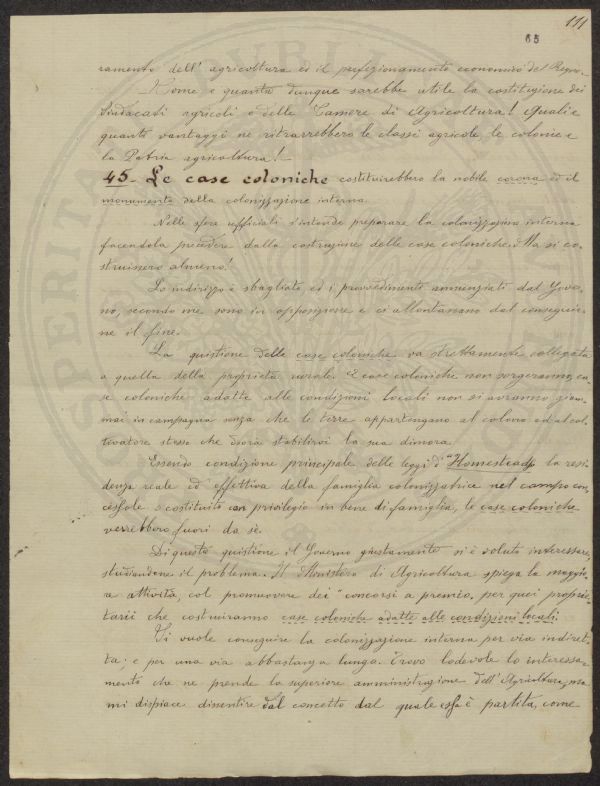 111
65
ramento dell' agricoltura ed il perfezionamento economico del Regno.-
Come e quanto dunque sarebbe utile la costituzione dei
Sindacati agricoli e delle Camere di Agricoltura! Quali e
quanti vantaggi ne ritrarrebbero le classi agricole, le colonie e
la Patria agricoltura!-
45- Le case coloniche costituirebbero la nobile corona ed il
monumento della colonizzazione interna.
Nelle sfere ufficiali s'intende preparare la colonizzazione interna
facendola precedere dalla costruzione delle case coloniche. Ma si co-
struissero almeno!
Lo indirizzo è sbagliato, ed i provvedimenti annunziati dal Gover-
no, secondo me sono in opposizione e ci allontanano dal conseguir-
ne il fine.
La quistione delle case coloniche va strettamente collegata
a quella della proprietà rurale. Le case coloniche non sorgeranno, ca-
se coloniche adatte alle condizioni locali non si avranno giam-
mai in campagna senza che le terre appartengano al colono ed al col-
tivatore stesso che dovrà stabilirvi la sua dimora.
Essendo condizione principale delle leggi d' "Homesteads la resi-
denza reale ed effettiva della famiglia colonizzatrice nel campo con-
cessole o costituito con privilegio in bene di famiglia, le case coloniche
verrebbero fuori da sè.
Di questa quistione il Governo giustamente si è voluto interessare,
studiandone il problema. Il Ministero di Agricoltura spiega la maggio-
re attività, col promuovere dei "concorsi a premio, per quei proprie-
tarii che costruiranno case coloniche adatte alle condizioni locali.
Si vuole conseguire la colonizzazione interna per via indiret-
ta; e per una via abbastanza lunga. Trovo lodevole lo interessa-
mento che ne prende la superiore amministrazione dell' Agricoltura, ma
mi dispiace dissentire dal concetto dal quale essa è partita, come